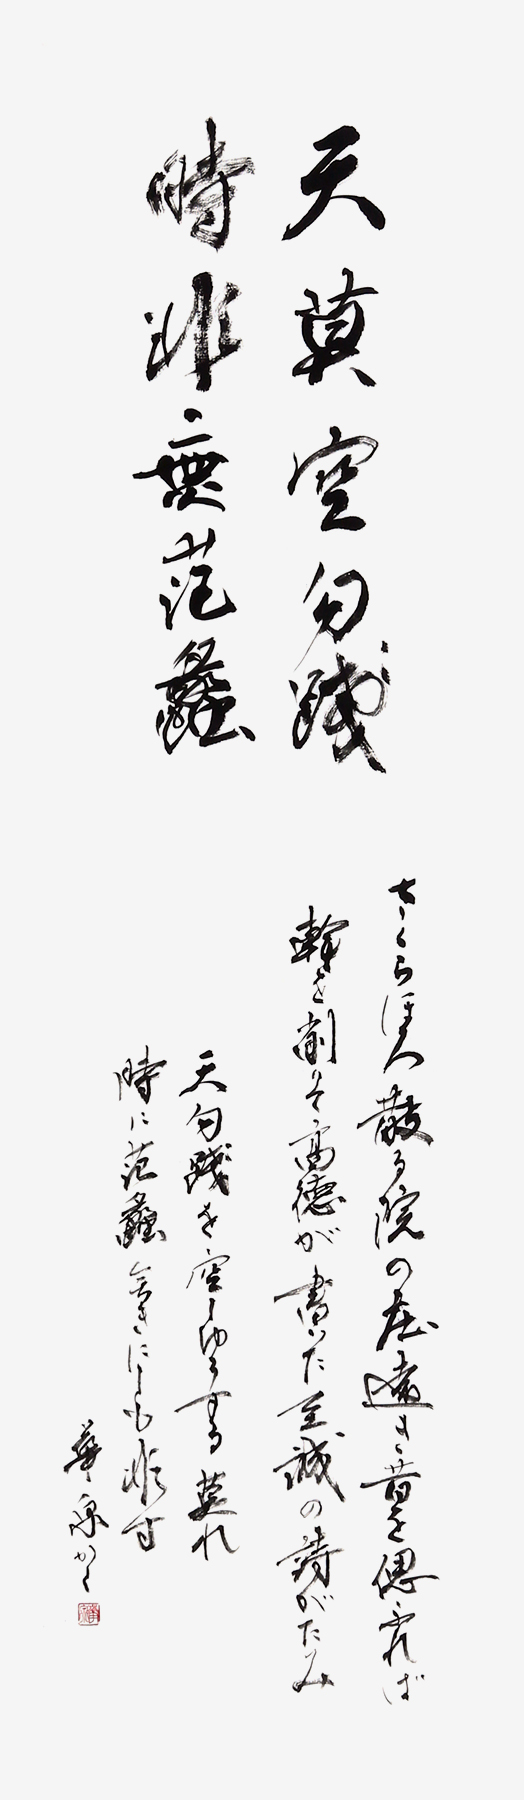 天莫空勾践
時非無范蠡
さくらほろ〱散る院の庄遠き昔を偲ぶれば
幹を削りて高徳が書いた至誠の詩がたみ
天勾践を空しゆうする莫れ
時に范蠡無きにしも非ず
華泉かく